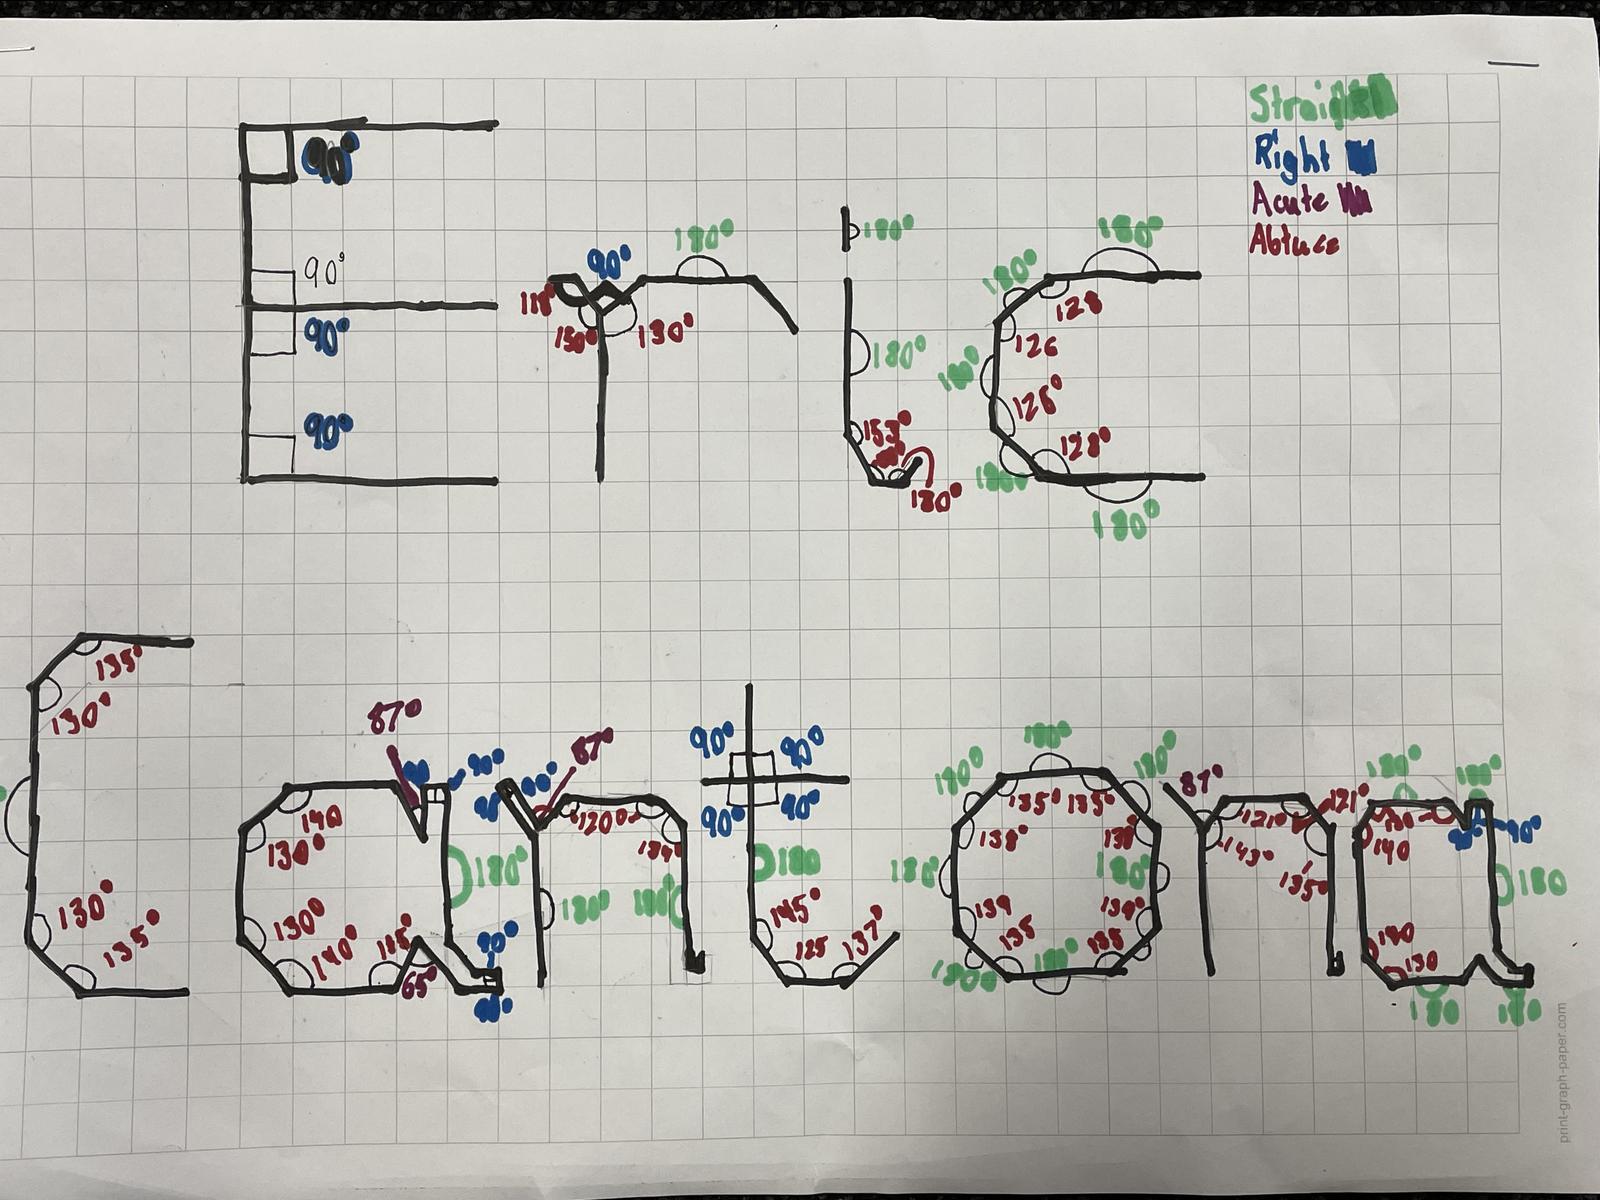 Straight
Right
Acute
Abtuce
90°
90°
90°
90°
118°
90°
180°
150°
130°
180°
180°
153°
180°
180°
180°
128
126
180°
126°
128°
180°
180°
135°
130°
130°
135°
87°
90
90°
140
130°
180°
130°
140°
115°
65°
90°
90°
90°
100°
87°
120°
134°
180°
180°
90°
90°
90°
90°
180
145°
125
137°
180°
180°
180°
135°
135°
138°
138°
180°
180°
139
139°
135
135
180°
180°
87°
121°
121°
143°
135°
180°
180°
130
140
90°
180
140
130
180
180
print-graph-paper.com